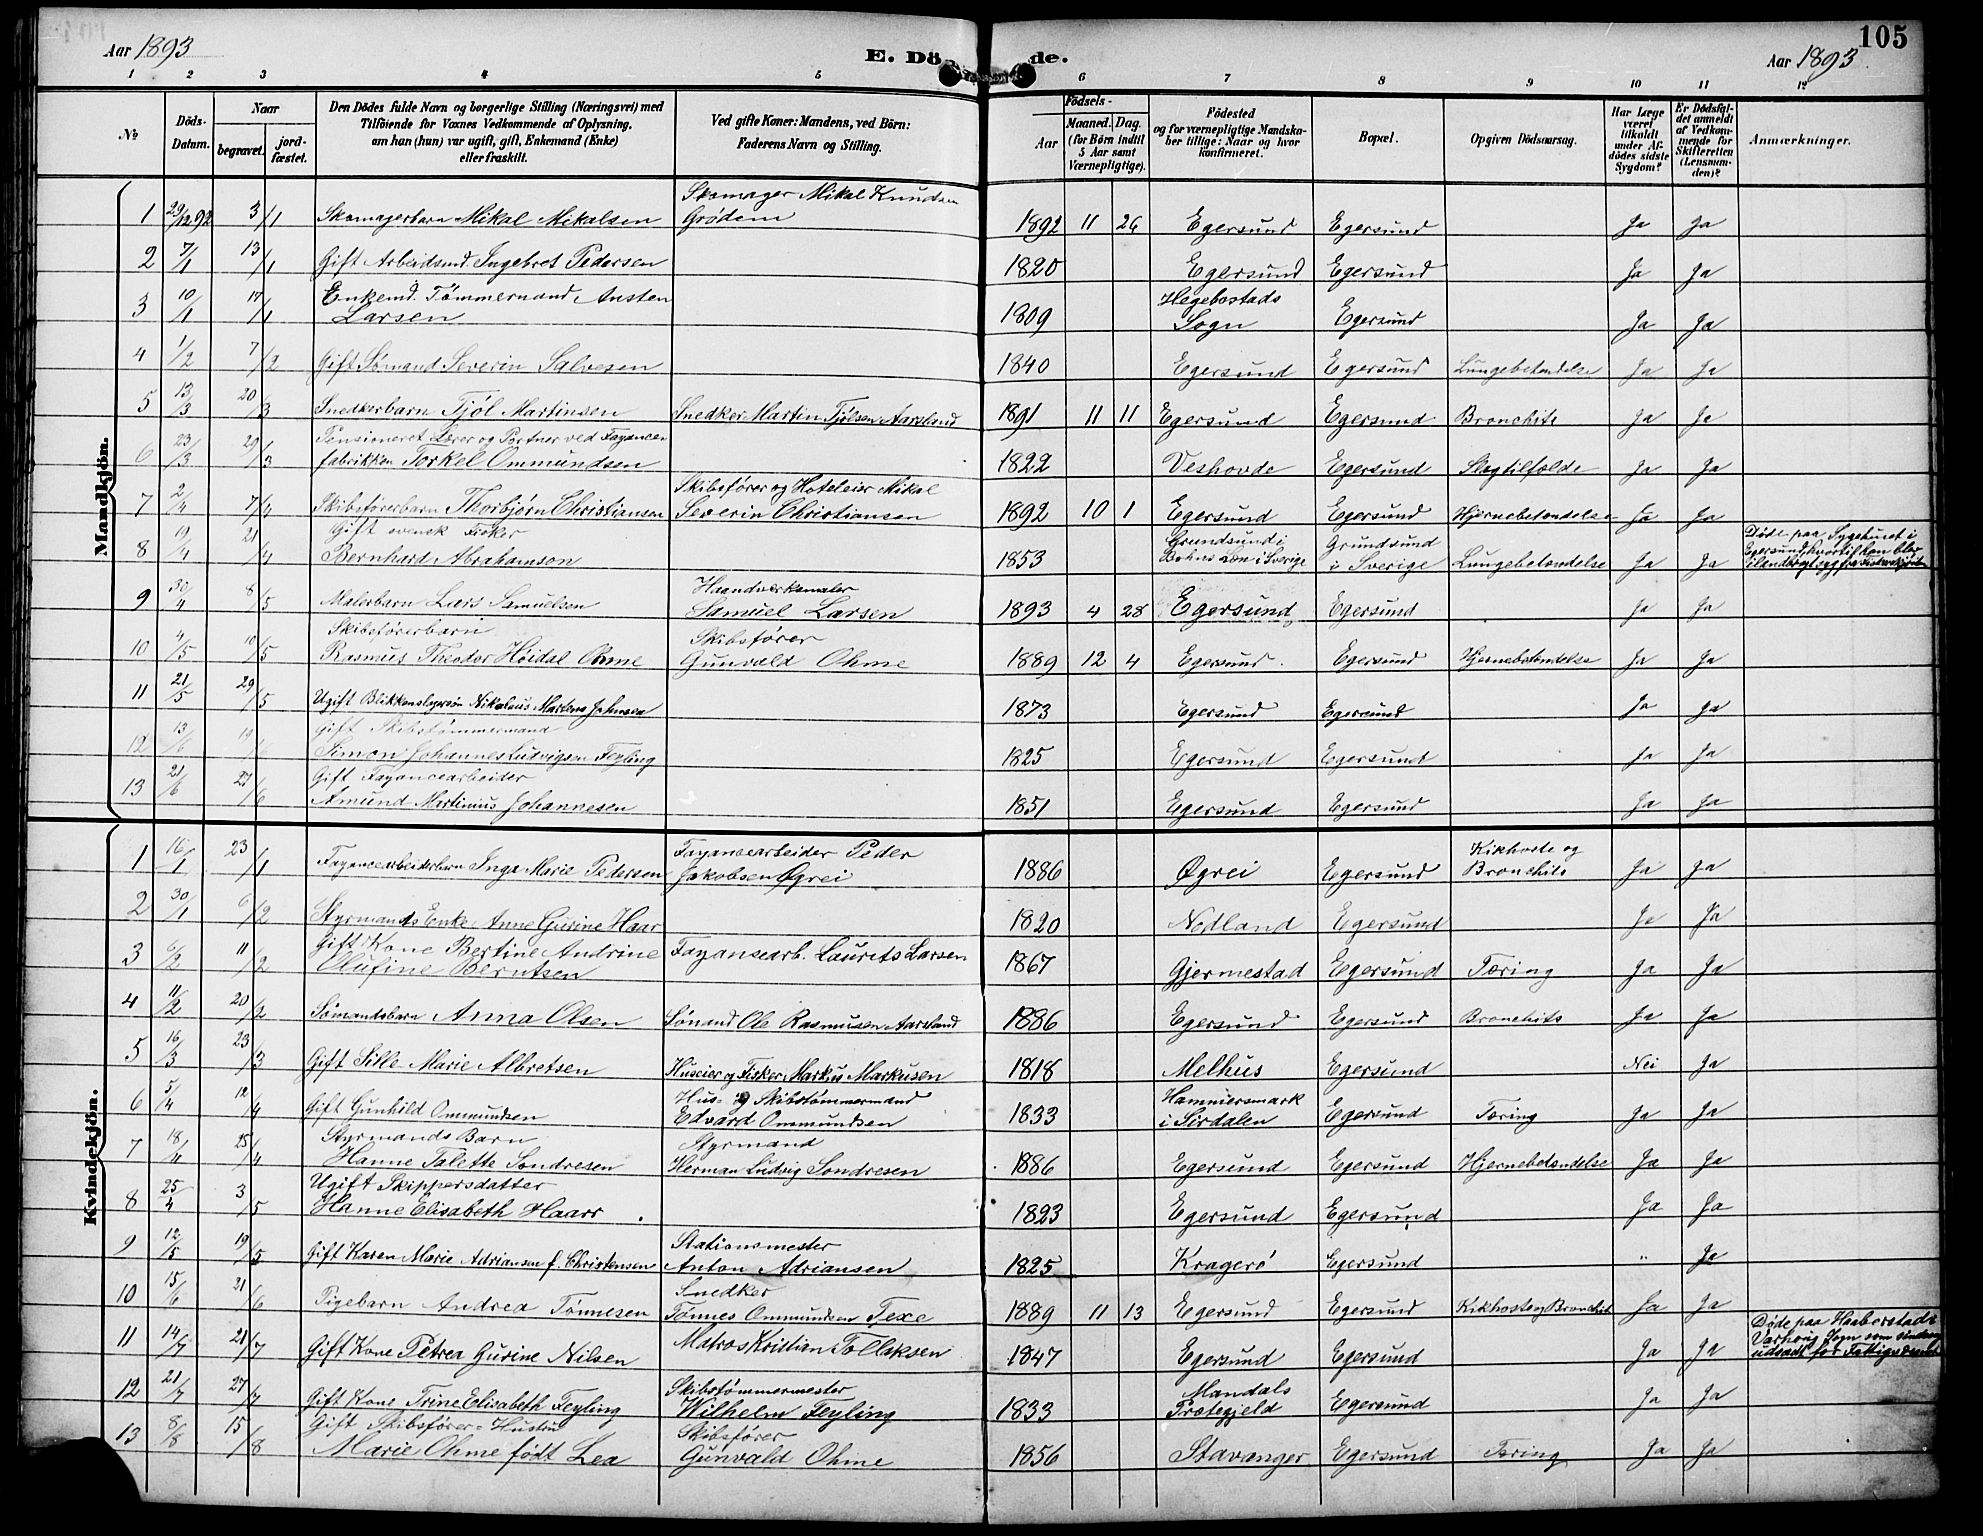 Aar 1893 E. Dö de. Aar 1893 105
1 2 3 4 5 6 7 8 9 10 11 12
No
Döds-Datum.
Naar
begravet. jord-fæstet.
Den Dödes fulde Navn og borgerlige Stilling (Næringsvei) med
Tilföiende for Voxnes Vedkommende af Oplysning,
om han (hun) var ugift, gift, Enkemand (Enke)
eller fraskilt.
Ved gifte Koner: Mandens, ved Börn:
Faderens Navn og Stilling.
Födsels-
Aar
Maaned. Dag.
(for Börn indtil
5 Aar samt
Værnepligtige).
Födested
og for værnepligtige Mandska-
ber tillige: Naar og hvor
konfirmeret.
Bopæl.
Opgiven Dödsaarsag.
Har Læge
været
tilkaldt
under Af-
dödes sidste
Sygdom?
Er Dödsfal-
det anmeldt
af Vedkom-
mende for
Skifteretten
(Lensman-
den)?
Anmærkninger.
Mandkjön.
Skomager Mikal Knudsen
1 29/12 92 3/1 Skomagerbarn Mikal Mikalsen Grødem 1892 11 26 Egersund Egersund Ja Ja
2 7/1 13/1 Gift Arbeidsmd. Ingebret Pedersen 1820 Egersund Egersund Ja Ja
3 10/1 17/1 Enkemd. Tømmermand Ansten Hegebostads
Larsen 1809 Sogn Egersund Ja Ja
4 1/2 7/2 Gift Sømand Severin Salvesen 1840 Egersund Egersund Lungebetændelse Ja Ja
5 13/3 20/3 Snedkerbarn Tjøl Martinsen Snedker Martin Tjølsen Aarsland 1891 11 11 Egersund Egersund Bronchits Ja Ja
6 23/3 29/3 Pensioneret Lærer og Portner ved Fayance
fabrikken Torkel Ommundsen 1822 Veshovde Egersund Slagtilfælde Ja Ja
Skibsfører og Hoteleier Mikal
7 2/4 7/4 Skibsførerbarn Thorbjørn Christiansen Severin Christiansen 1892 10 1 Egersund Egersund Hjernebetændelse Ja Ja
Gift svensk Fisker Grundsund i Grundsund Døde paa Sygehuset i
8 19/4 21/4 Bernhard Abrahamson 1853 Bohus Len i Sverige i Sverige Lungebetændelse Ja Ja Egersund, hvortil han blev
Haandverksmaler
9 30/4 8/5 Malerbarn Lars Samuelsen Samuel Larsen 1893 4 28 Egersund Egersund Ja Ja
Skibsførerbarn Skibsfører
10 4/5 10/5 Rasmus Theodor Höidal Ohme Gunvald Ohme 1889 12 4 Egersund Egersund Hjernebetændelse Ja Ja
11 21/5 29/5 Ugift Blikkenslagersøn Nikolaus Martens Johnsen 1873 Egersund Egersund Ja Ja
Gift Skibstømmermand
12 13/6 19/6 Simon Johannes Ludvigsen Feyling 1825 Egersund Egersund Ja Ja
Gift Fayancearbeider
13 21/6 27/6 Amund Martinius Johannesen 1851 Egersund Egersund Ja Ja
Kvindekjön.
Fayancearbeider Peder Kikhoste og
1 16/1 23/1 Fayancearbeiderbarn Inga Marie Pedersen Jakobsen Øgrei 1886 Øgrei Egersund Bronchits Ja Ja
2 30/1 6/2 Styrmands Enke Anne Gurine Haar 1820 Nodland Egersund Ja Ja
3 6/2 11/2 Gift Kone Bertine Andrine Fayansearb. Laurits Larsen
Olufine Berntsen 1867 Gjermestad Egersund Tæring Ja Ja
4 11/2 20/2 Sømandsbarn Anna Olsen Sømand Ole Rasmusen Aarsland 1886 Egersund Egersund Bronchits Ja Ja
5 16/3 23/3 Gift Sille Marie Albretsen Huseier og Fisker Markus Markusen 1818 Melhus Egersund Nei Ja
Hus- og Skibstømmermand Hammersmark
6 5/4 12/4 Gift Gunhild Ommundsen Edvard Ommundsen 1833 i Sirdalen Egersund Tæring Ja Ja
Styrmands Barn Styrmand
7 18/4 25/4 Hanne Talette Sondresen Herman Ludvig Sondresen 1886 Egersund Egersund Hjernebetændelse Ja Ja
Ugift Skippersdatter
8 25/4 3/5 Hanne Elisabeth Haarr 1823 Egersund Egersund Ja Ja
Stationsmester
9 12/5 19/5 Gift Karen Marie Adriansen f. Christensen Anton Adriansen 1825 Kragerö Egersund " Ja
Snedker
10 15/6 21/6 Pigebarn Andrea Tønnesen Tønnes Ommundsen Texe 1889 11 13 Egersund Egersund Kikhoste og Bronchit Ja Ja
Døde paa Haaberstad i
11 14/7 21/7 Gift Kone Petrea Gurine Nilsen Matros Kristian Tollaksen 1847 Egersund Egersund Ja Ja Varhoug Sogn som sindssyg
udsadt for Fattigvæsenet
Skibstømmermester Mandals
12 21/7 27/7 Gift Kone Trine Elisabeth Feyling Wilhelm Feyling 1833 Prstegjeld Egersund Ja Ja
Gift Skibsfører-Hustru Skibsfører
13 8/8 15/8 Marie Ohme født Lea Gunvald Ohme 1856 Stavanger Egersund Tæring Ja Ja